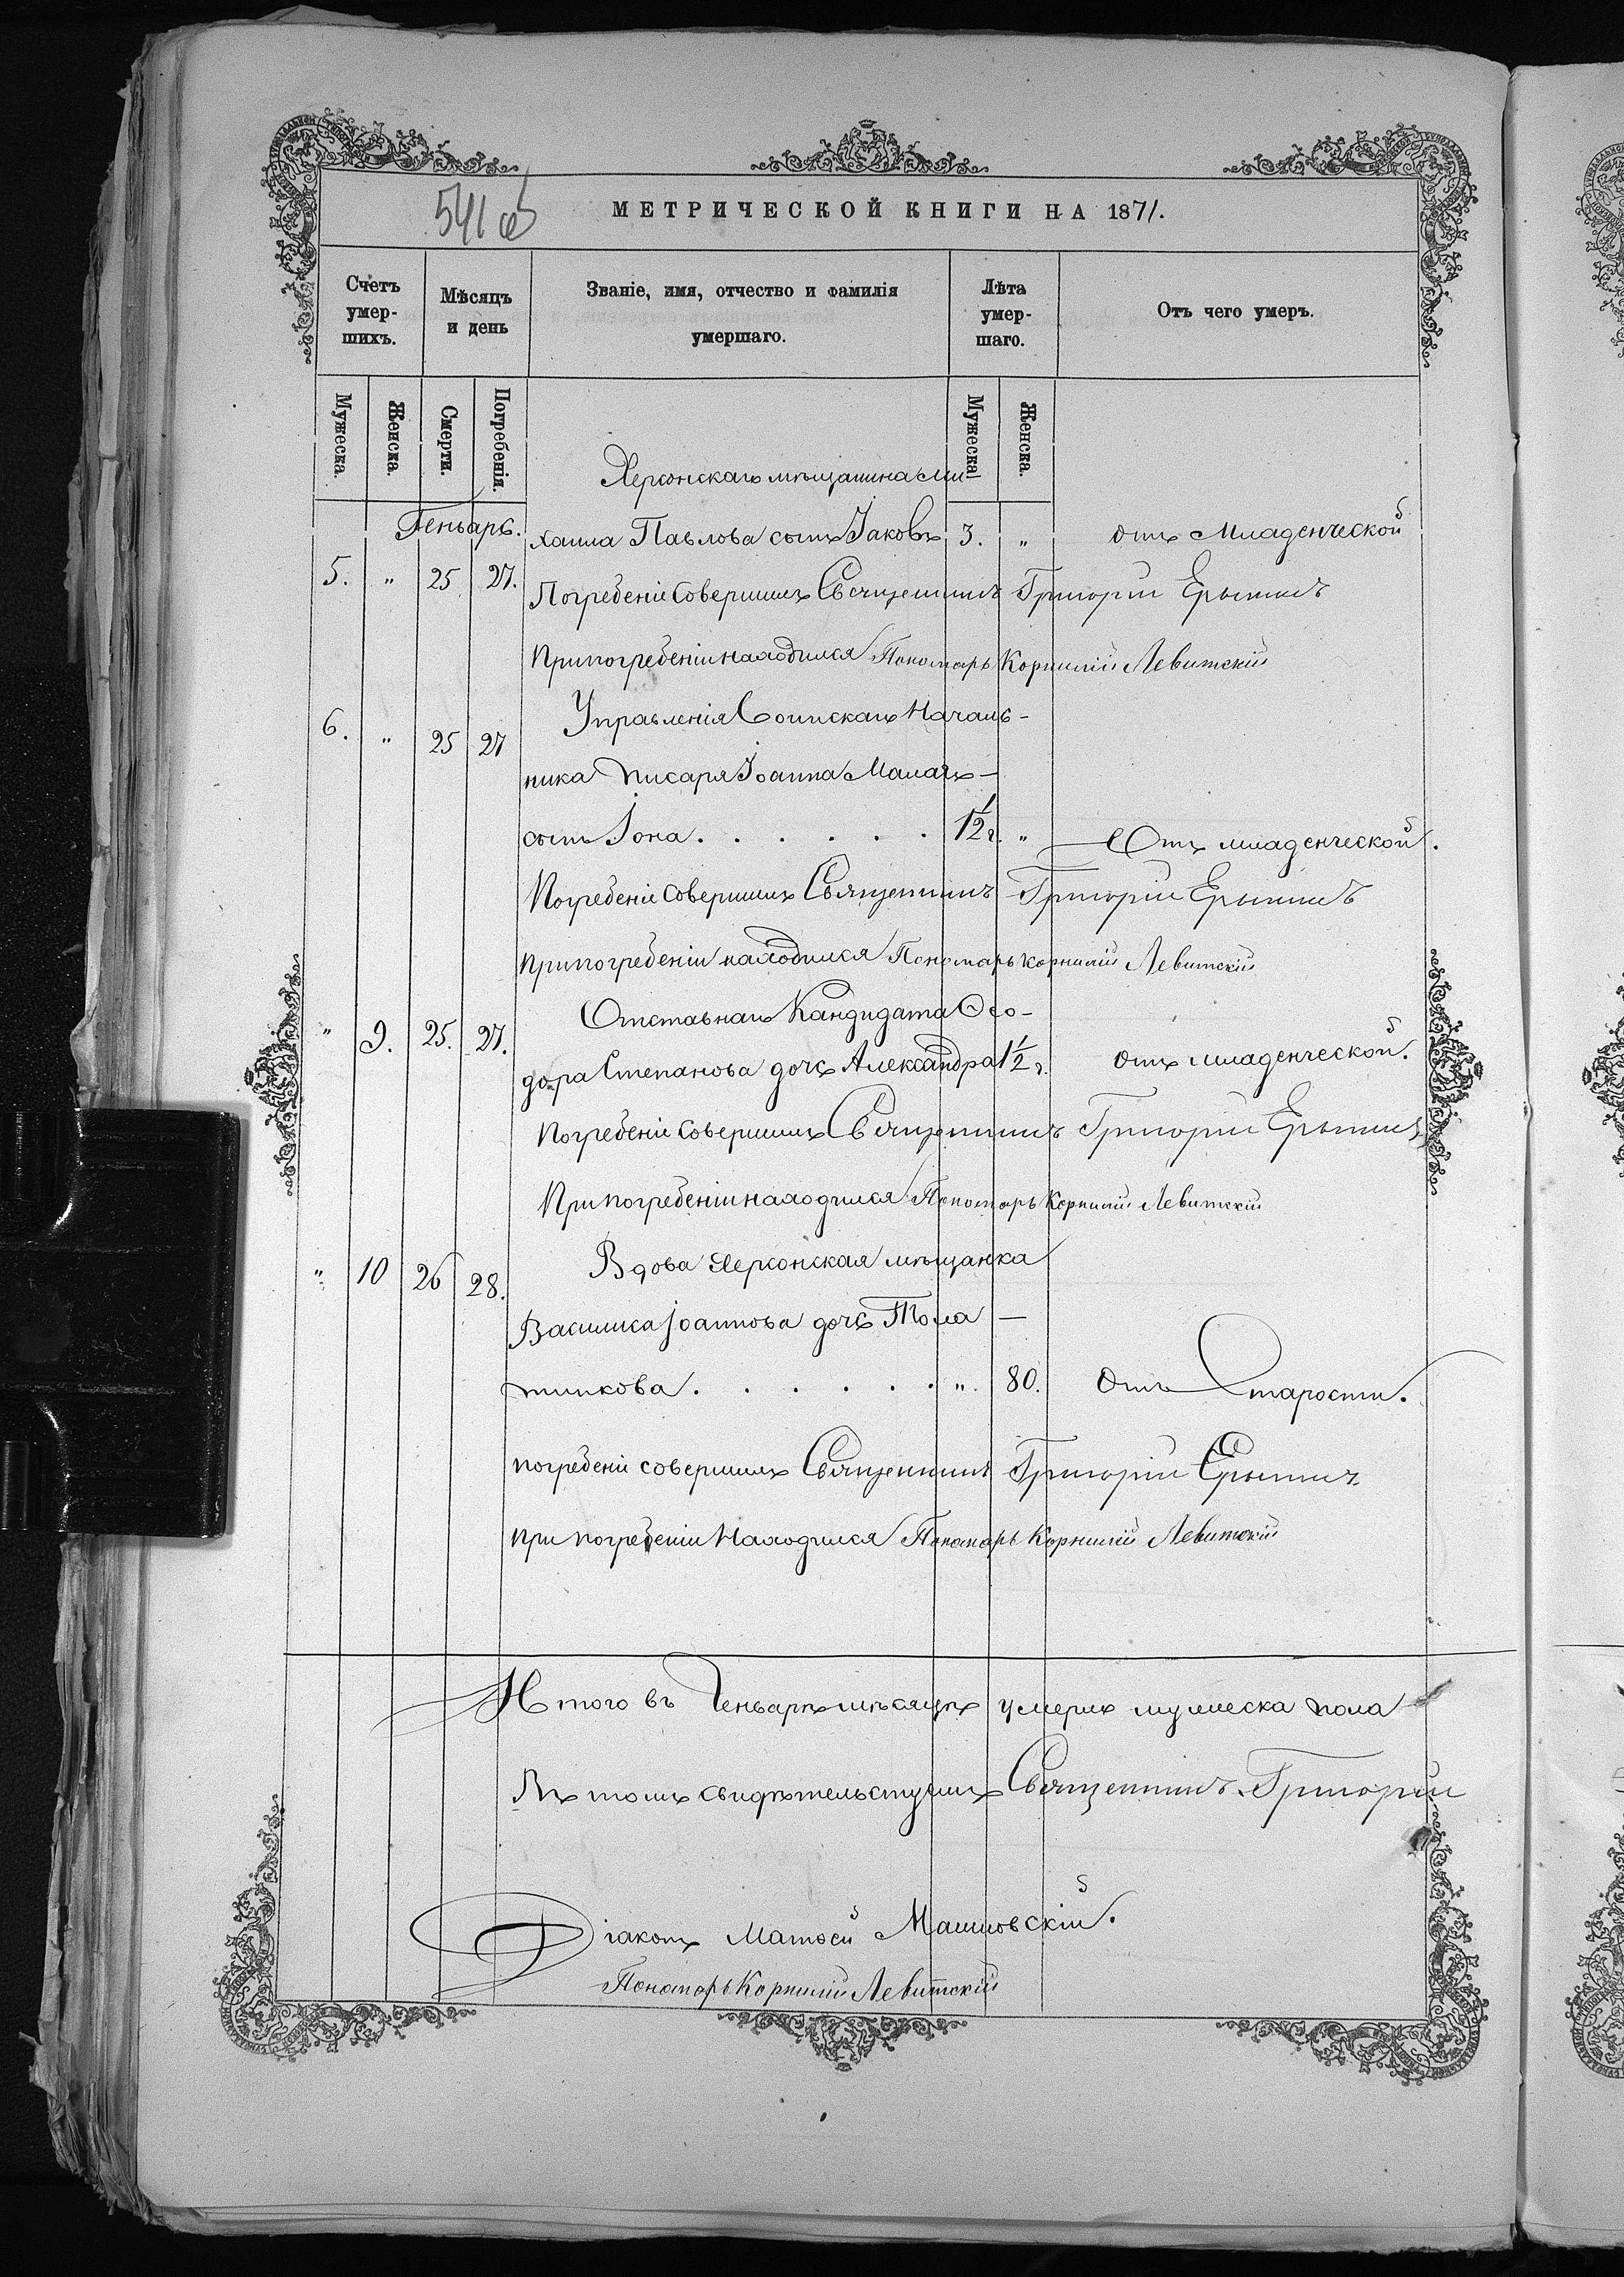 541 об
МЕТРИЧЕСКОЙ КНИГИ НА 1871.
Счетъ умер- шихъ.
Мѣсяцъ и день
Званіе, имя, отчество и фамилія умершаго.
Лѣта умер- шаго.
Отъ чего умеръ.
Мужеска. Женска. Смерти. Погребенія. Мужеска Женска.
Херсонскаго мѣщанина Ми-
Геньварь. хаила Павлова сынъ Іаковъ 3. " отъ Младенческой
5. " 25 27. Погребеніе Совершилъ Священникъ Григорій
При погребеніи находился Пономарь Корнилій Левитскій
6. " 25 27 Управленія Воинскаго Началь-
ника Писаря Іоанна
сынъ Іона. . . . . . . 1½ г. " Отъ младенческой.
Погребеніе Совершилъ Священникъ Григорій
При погребеніи находился Пономарь Корнилій Левитскій
" 9. 25. 27. Отставнаго Кандидата Ѳео-
дора Степанова дочь Александра 1½ г. отъ младенческой.
Погребеніе Совершилъ Священникъ Григорій
При погребеніи находился Пономарь Корнилій Левитскій
" 10 26 28. Вдова Херсонская мѣщанка
Василиса Іоаннова дочь
. . . . . . . ". 80. Отъ Старости.
погребеніе совершилъ Священникъ Григорій
при погребеніи Находился Пономарь Корнилій Левитскій
Итого въ Геньварѣ мѣсяцѣ умерло мужеска пола
Въ томъ свидѣтельствуемъ Священникъ Григорій
Діаконъ Матѳей
Пономарь Корнилій Левитскій